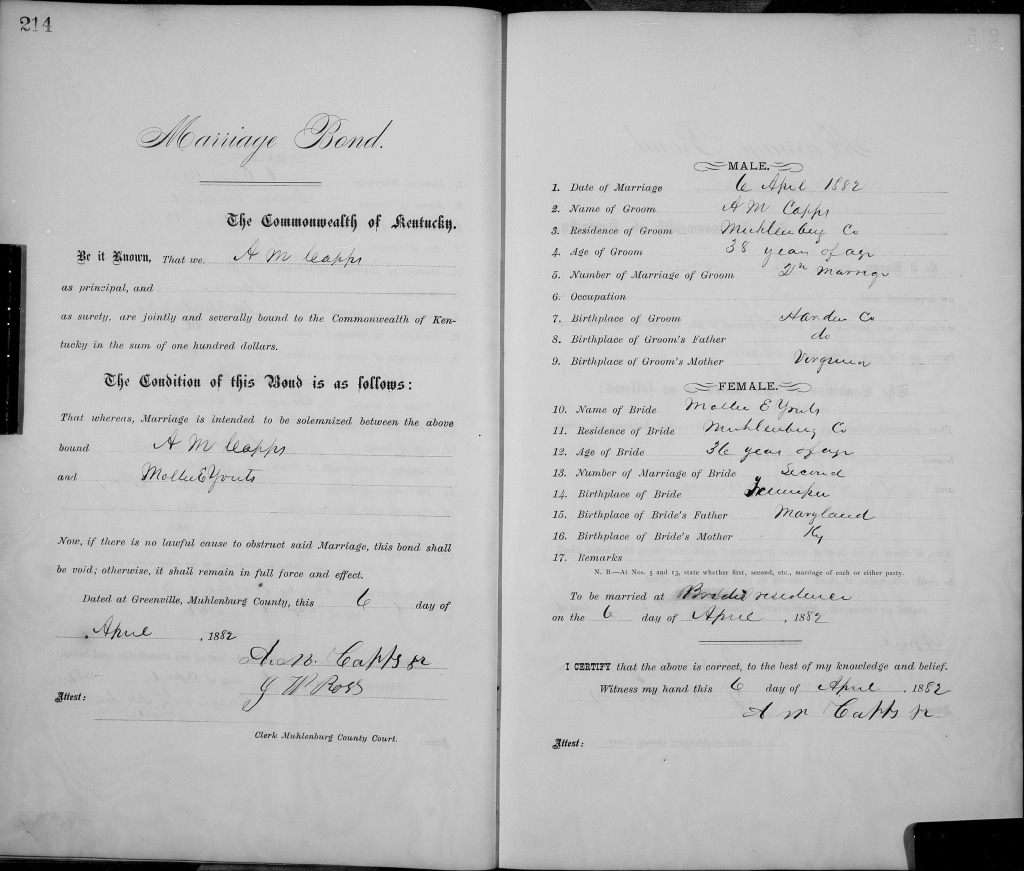 214
Marriage Bond.
The Commonwealth of Kentucky.
Be it Known, That we, A M Capps
as principal, and
as surety, are jointly and severally bound to the Commonwealth of Ken-
tucky in the sum of one hundred dollars.
The Condition of this Bond is as follows:
That whereas, Marriage is intended to be solemnized between the above
bound A M Capps
and Mollie E Yonts
Now, if there is no lawful cause to obstruct said Marriage, this bond shall
be void; otherwise, it shall remain in full force and effect.
Dated at Greenville, Muhlenburg County, this 6 day of
April, 1882
A. M. Capps Jr
J W Ross
Attest:
Clerk Muhlenburg County Court.
MALE.
1. Date of Marriage 6 April 1882
2. Name of Groom A M Capps
3. Residence of Groom Muhlenburg Co
4. Age of Groom 38 years of age
5. Number of Marriage of Groom Marriage
6. Occupation
7. Birthplace of Groom Harden Co
8. Birthplace of Groom's Father do
9. Birthplace of Groom's Mother
FEMALE.
10. Name of Bride Mollie E Yonts
11. Residence of Bride Muhlenburg Co
12. Age of Bride 36 years of age
13. Number of Marriage of Bride Second
14. Birthplace of Bride
15. Birthplace of Bride's Father Maryland
16. Birthplace of Bride's Mother Ky
17. Remarks
N. B.—At Nos. 5 and 13, state whether first, second, etc., marriage of each or either party.
To be married at Brides residence
on the 6 day of April, 1882
I CERTIFY that the above is correct, to the best of my knowledge and belief.
Witness my hand this 6 day of April, 1882
A M Capps Jr
Attest: